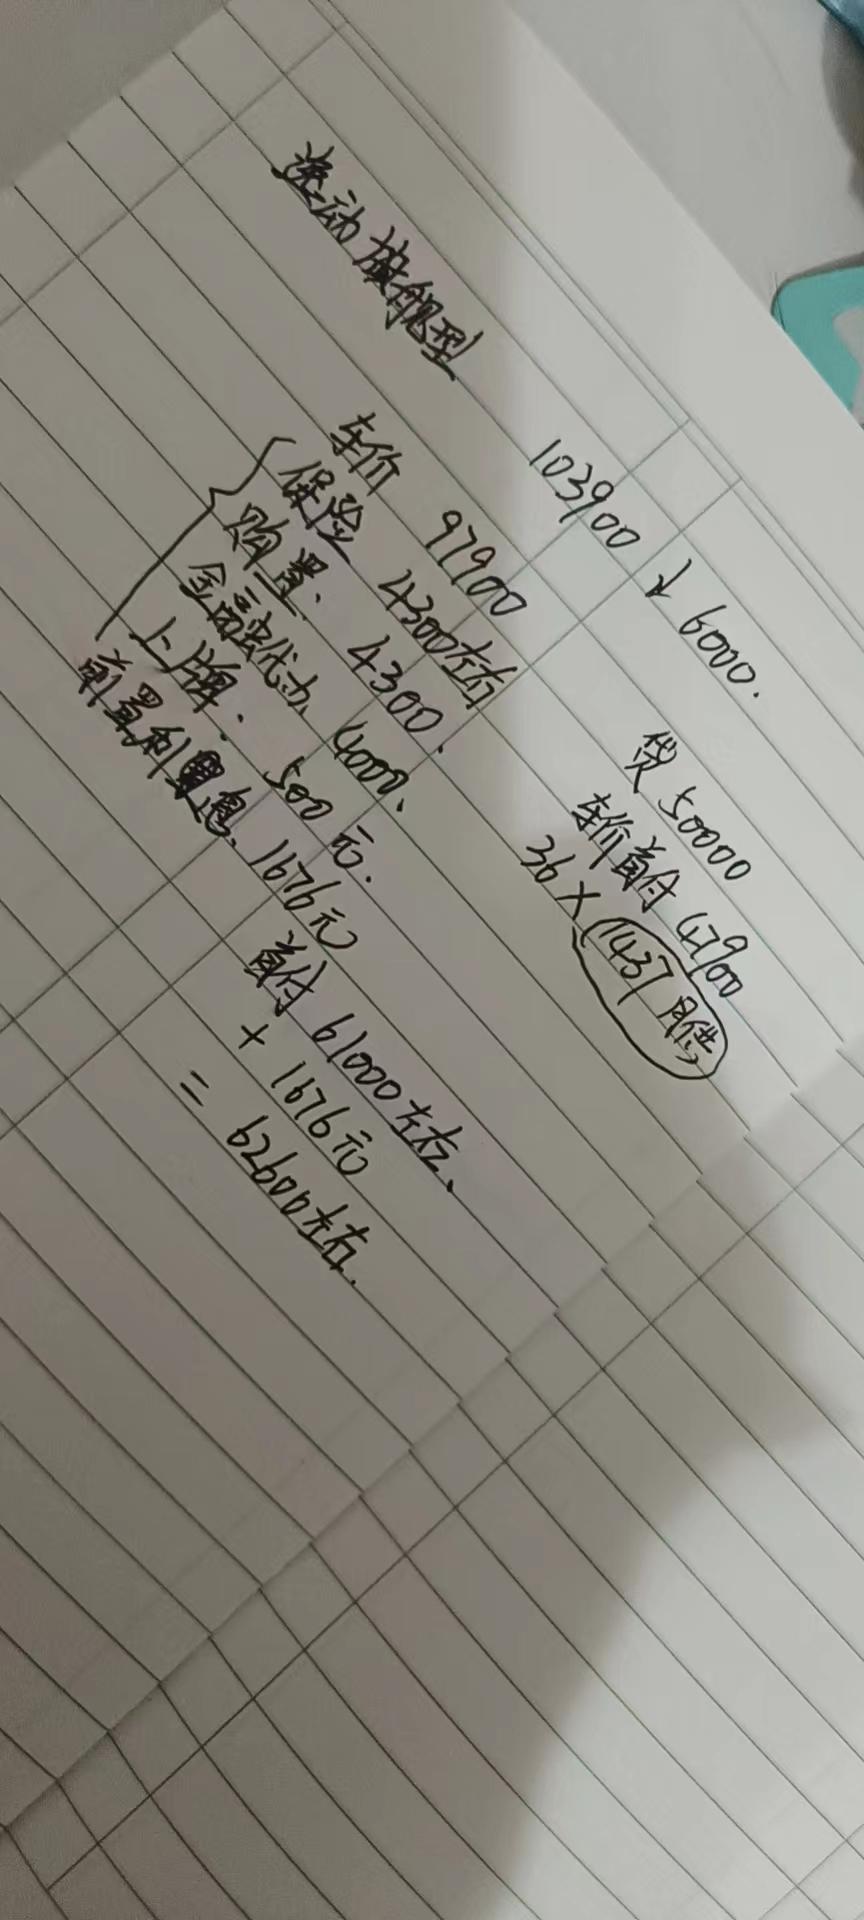 逸动旗舰型
103900 ↓ 6000.
车价 97900
保险 4300左右
购置、4300.
金融代办 4000、
上牌. 500元.
前置利息、1676元
贷 50000
车价首付 47900
36 × 1437 月供
首付 61000左右、
+ 1676元
= 62600左右.